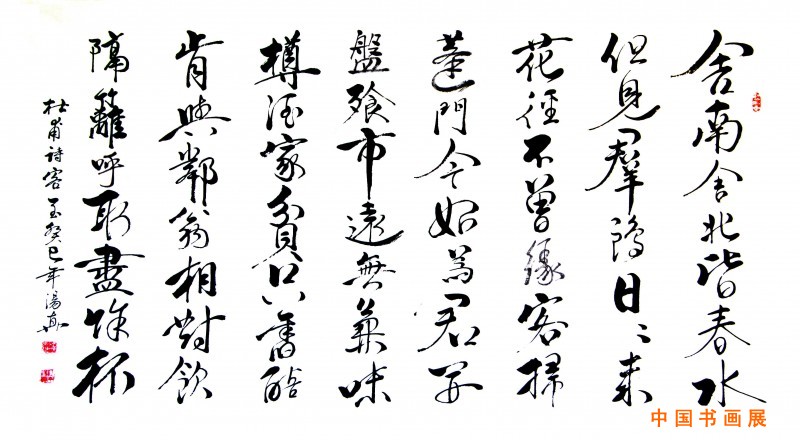 舍南舍北皆春水
但見羣鷗日〻来
花徑不曾緣客掃
蓬門今始為君开
盤飱市遠無兼味
樽酒家貧只舊醅
肯與鄰翁相對飲
隔籬呼取盡馀杯
杜甫詩客至癸巳年湯
中国书画展